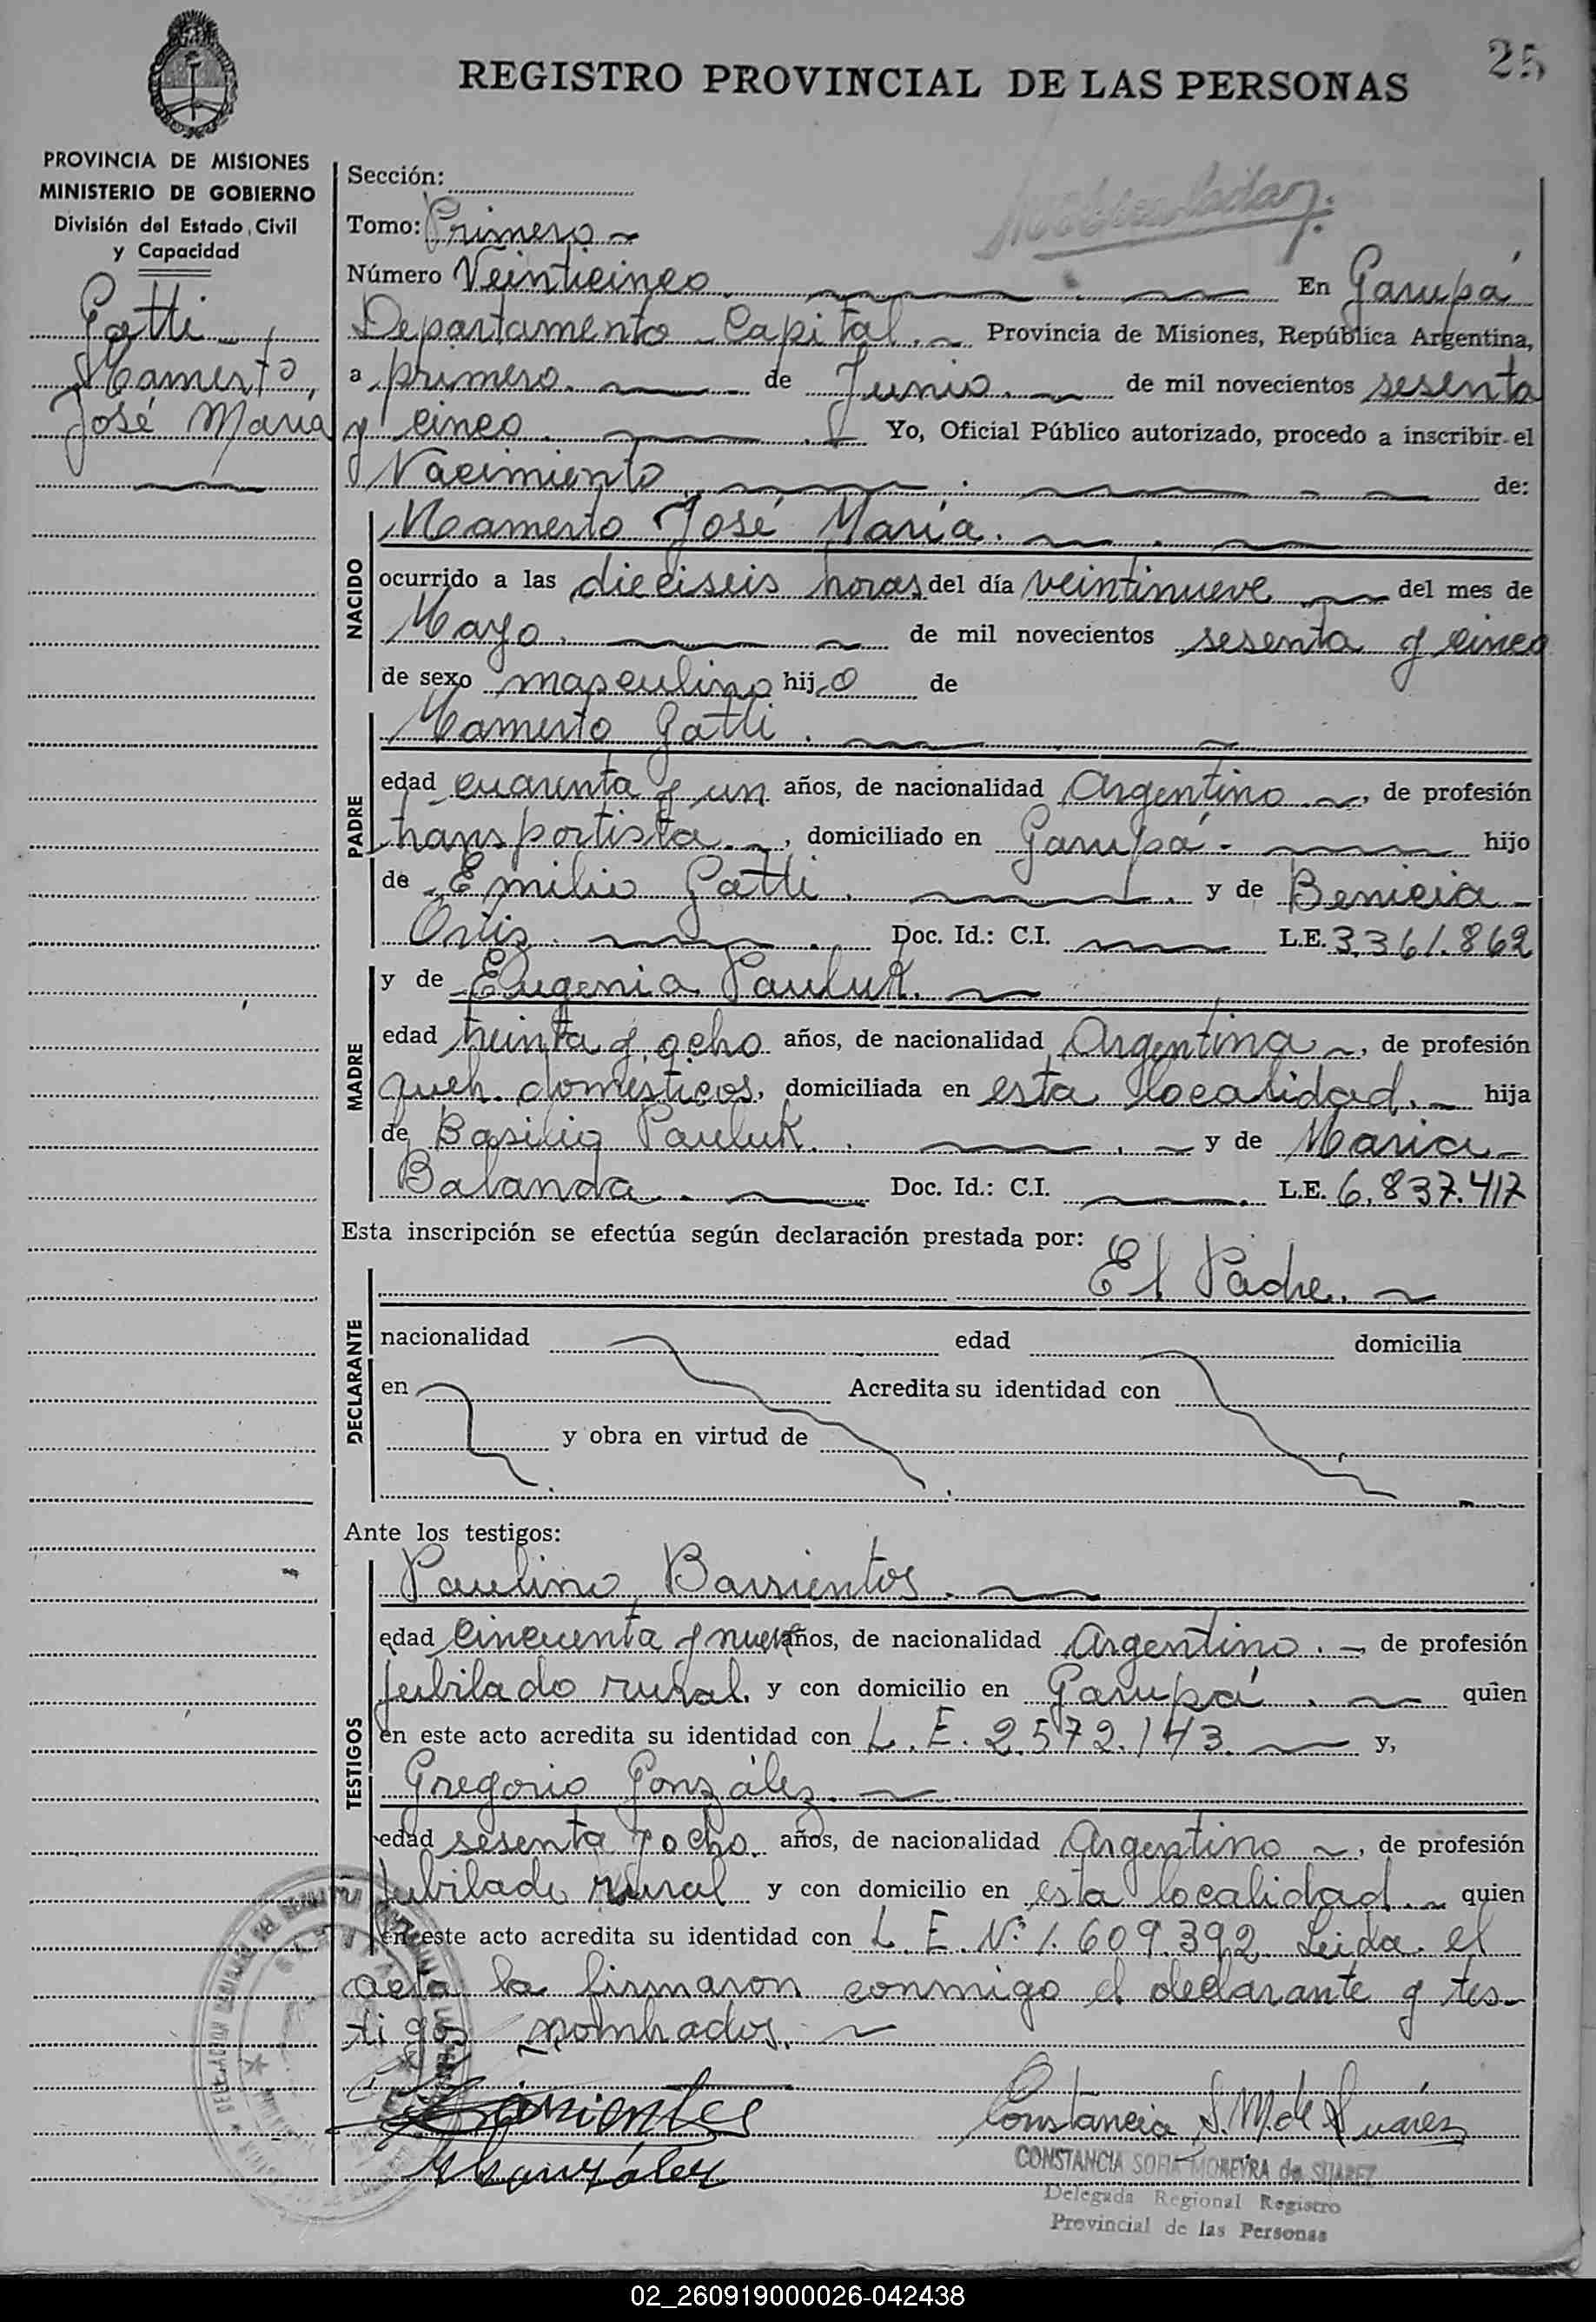 25
REGISTRO PROVINCIAL DE LAS PERSONAS
PROVINCIA DE MISIONES
MINISTERIO DE GOBIERNO
División del Estado Civil
y Capacidad
Gatti
Mamerto
José María
Sección:
Tomo: Primero
Número Veinticinco En Garupá
Departamento Capital. Provincia de Misiones, República Argentina,
a primero. de Junio. de mil novecientos sesenta
y cinco. Yo, Oficial Público autorizado, procedo a inscribir el
Nacimiento de:
NACIDO
Mamerto José María.
ocurrido a las dieciseis horas del día veintinueve del mes de
Mayo. de mil novecientos sesenta y cinco
de sexo masculino hijo de
PADRE
Mamerto Gatti.
edad cuarenta y un años, de nacionalidad Argentino, de profesión
transportista., domiciliado en Garupá. hijo
de Emilio Gatti. y de Benicia
Ortiz. Doc. Id.: C.I. L.E. 3.361.862
MADRE
y de Eugenia Pauluk.
edad treinta y ocho años, de nacionalidad Argentina, de profesión
queh. domésticos, domiciliada en esta localidad. hija
de Basilio Pauluk. y de Maria
Balanda. Doc. Id.: C.I. L.E. 6.837.417
Esta inscripción se efectúa según declaración prestada por:
El Padre.
DECLARANTE
nacionalidad edad domicilia
en Acredita su identidad con
y obra en virtud de
Ante los testigos:
TESTIGOS
Paulino Barrientos.
edad cincuenta y nueve años, de nacionalidad Argentino. de profesión
jubilado rural. y con domicilio en Garupá. quien
en este acto acredita su identidad con L. E. 2.572.143. y,
Gregorio González.
edad sesenta y ocho. años, de nacionalidad Argentino, de profesión
jubilado rural y con domicilio en esta localidad. quien
en este acto acredita su identidad con L. E. Nº 1.609.392. Leida el
acta la firmaron conmigo el declarante y tes-
tigos nombrados.
Barrientos
González
Constancia S. M. de Suárez
CONSTANCIA SOFIA MOREYRA de SUAREZ
Delegada Regional Registro
Provincial de las Personas
02_260919000026-042438